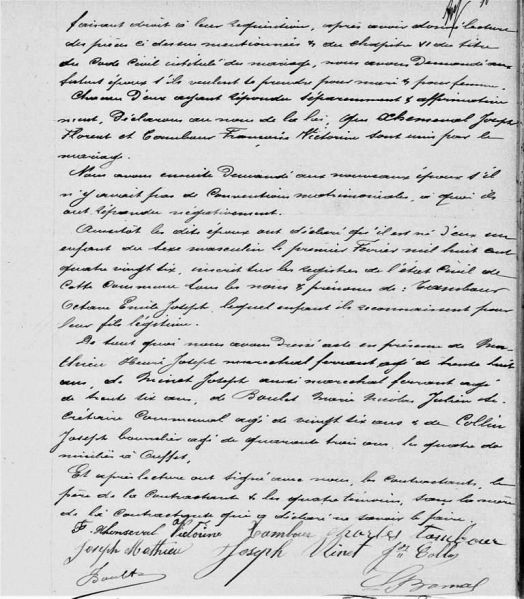 faisant droit à leur réquisition, après avoir donné lecture
des pièces ci dessus mentionnées & du chapitre VI du titre
du Code Civil intitulé du mariage, nous avons demandé aux
futurs époux s'ils veulent se prendre pour mari & pour femme.
Chacun d'eux ayant répondu séparemment & affirmative
ment, Déclarons au nom de la loi, que Joseph
Florent et Tambour Françoise Victorine sont unis par le
mariage.
Nous avons ensuite demandé aux nouveaux époux s'il
n'y avait pas de Conventions matrimoniales, à quoi ils
ont répondu négativement.
Aussitôt les dits époux ont déclaré qu'il est né d'eux un
enfant du sexe masculin le premier Février mil huit cent
quatre vingt six, inscrit sur les registres de l'état Civil de
Cette Commune sous les noms & prénoms de : Tambour
Octave Emile Joseph, lequel enfant ils reconnaissent pour
leur fils légitime.
De tout quoi nous avons dressé acte en présence de Ma-
thieu Henri Joseph maréchal ferrant agé de trente huit
ans, de Joseph aussi maréchal ferrant agé
de trente six ans, de Boulet Marie Nicolas Julien Se-
crétaire Communal agé de vingt six ans & de Collin
Joseph bourrelier agé de quarante trois ans, les quatre do
miciliés à Ouffet.
Et après lecture ont signé avec nous, les Contractants, le
père de la Contractante & les quatre témoins, sauf la mère
de la Contractante qui a déclaré ne savoir le faire.
Victorine Tambour Charles Tambour
Joseph Mathieu Joseph
Boulet